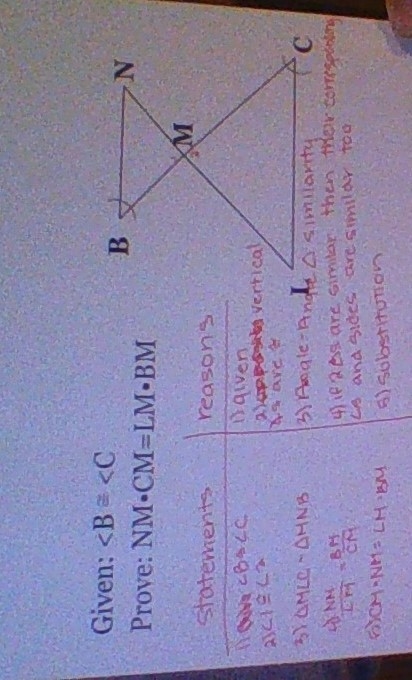 Given: <B ≅ <C
Prove: NM•CM=LM•BM
B
N
M
L
C
statements
reasons
1) <B≅<C
1) given
2) <1 ≅ <2
2) vertical
∠s are ≅
3) △MLC ~ △MNB
3) Angle-Angle △ similarity
4) NM/LM = BM/CM
4) if 2 △s are similar then their corresponding
∠s and sides are similar too
5) CM•NM = LM•BM
5) substitution